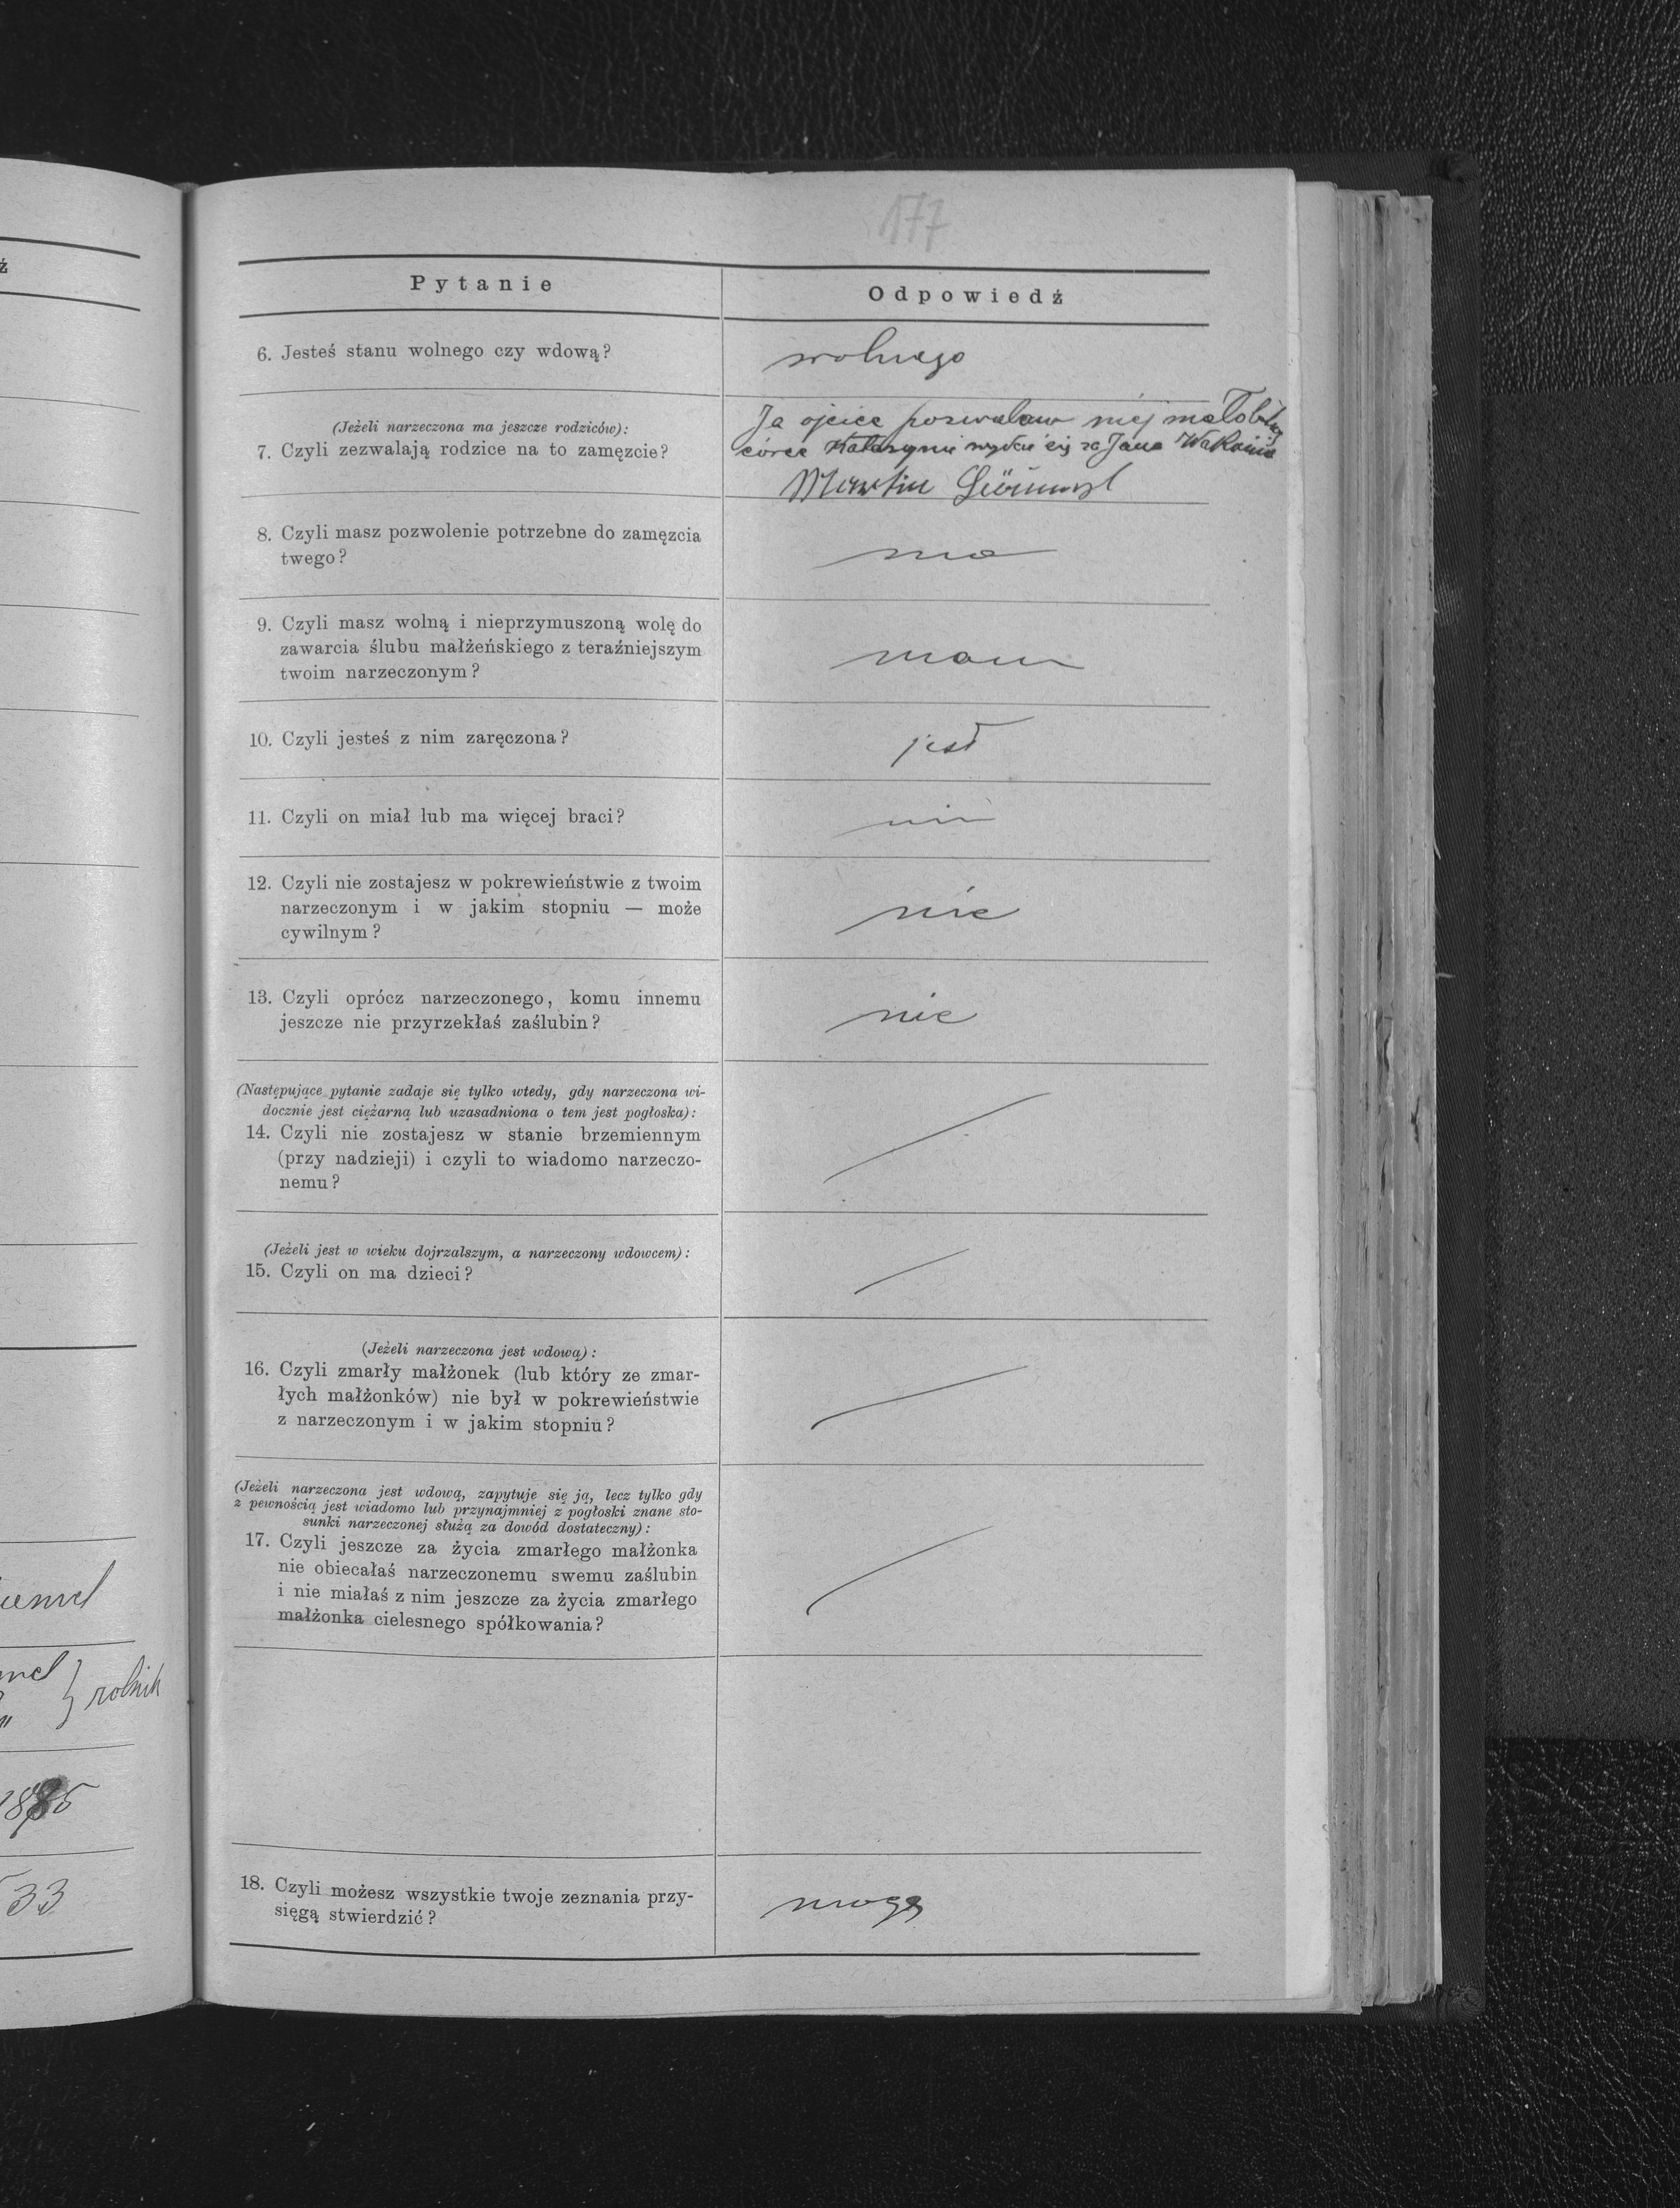 177
ź
Pytanie
Odpowiedź
6. Jesteś stanu wolnego czy wdową?
wolnego
(Jeżeli narzeczona ma jeszcze rodziców):
7. Czyli zezwalają rodzice na to zamęzcie?
Ja ojciec pozwalam mej małoletniej
córce Katarzynie wydać się za Jana
Martin
8. Czyli masz pozwolenie potrzebne do zamęzcia
twego?
ma
9. Czyli masz wolną i nieprzymuszoną wolę do
zawarcia ślubu małżeńskiego z teraźniejszym
twoim narzeczonym?
mam
10. Czyli jesteś z nim zaręczona?
jest
11. Czyli on miał lub ma więcej braci?
nie
12. Czyli nie zostajesz w pokrewieństwie z twoim
narzeczonym i w jakim stopniu — może
cywilnym?
nie
13. Czyli oprócz narzeczonego, komu innemu
jeszcze nie przyrzekłaś zaślubin?
nie
(Następujące pytanie zadaje się tylko wtedy, gdy narzeczona wi-
docznie jest ciężarną lub uzasadniona o tem jest pogłoska):
14. Czyli nie zostajesz w stanie brzemiennym
(przy nadzieji) i czyli to wiadomo narzeczo-
nemu?
(Jeżeli jest w wieku dojrzalszym, a narzeczony wdowcem):
15. Czyli on ma dzieci?
(Jeżeli narzeczona jest wdową):
16. Czyli zmarły małżonek (lub który ze zmar-
łych małżonków) nie był w pokrewieństwie
z narzeczonym i w jakim stopniu?
(Jeżeli narzeczona jest wdową, zapytuje się ją, lecz tylko gdy
z pewnością jest wiadomo lub przynajmniej z pogłoski znane sto-
sunki narzeczonej służą za dowód dostateczny):
17. Czyli jeszcze za życia zmarłego małżonka
nie obiecałaś narzeczonemu swemu zaślubin
i nie miałaś z nim jeszcze za życia zmarłego
małżonka cielesnego spółkowania?
rolnik
33
18. Czyli możesz wszystkie twoje zeznania przy-
sięgą stwierdzić?
mogę